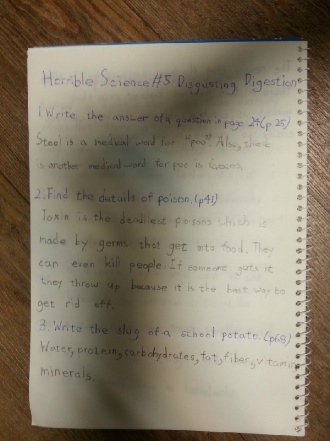 Horrible Science #5 Disgusting Digestion
1. Write the answer of a question in page 24(p.25)
Stool is a medical word for "poo". Also, there
is another medical word for poo is
2. Find the details of poison.(p41)
Toxin is the deadliest poisons which is
made by germs that get into food. They
can even kill people. If someone gets it
they throw up because it is the best way to
get rid off.
3. Write the slug of a school potato.(p68)
Water, protein, carbohydrates, fat, fiber, vitamins
minerals.